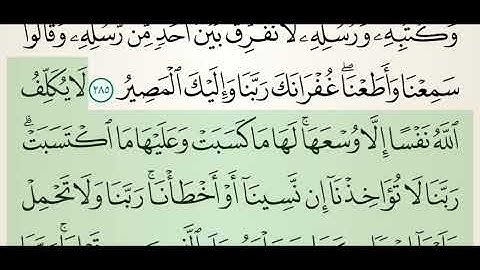 وَكُتُبِهِۦ وَرُسُلِهِۦ لَا نُفَرِّقُ بَيْنَ أَحَدٍ مِّن رُّسُلِهِۦ وَقَالُوا۟
سَمِعْنَا وَأَطَعْنَا ۖ غُفْرَانَكَ رَبَّنَا وَإِلَيْكَ الْمَصِيرُ ٢٨٥ لَا يُكَلِّفُ
اللَّهُ نَفْسًا إِلَّا وُسْعَهَا ۚ لَهَا مَا كَسَبَتْ وَعَلَيْهَا مَا اكْتَسَبَتْ ۗ
رَبَّنَا لَا تُؤَاخِذْنَا إِن نَّسِينَا أَوْ أَخْطَأْنَا ۚ رَبَّنَا وَلَا تَحْمِلْ